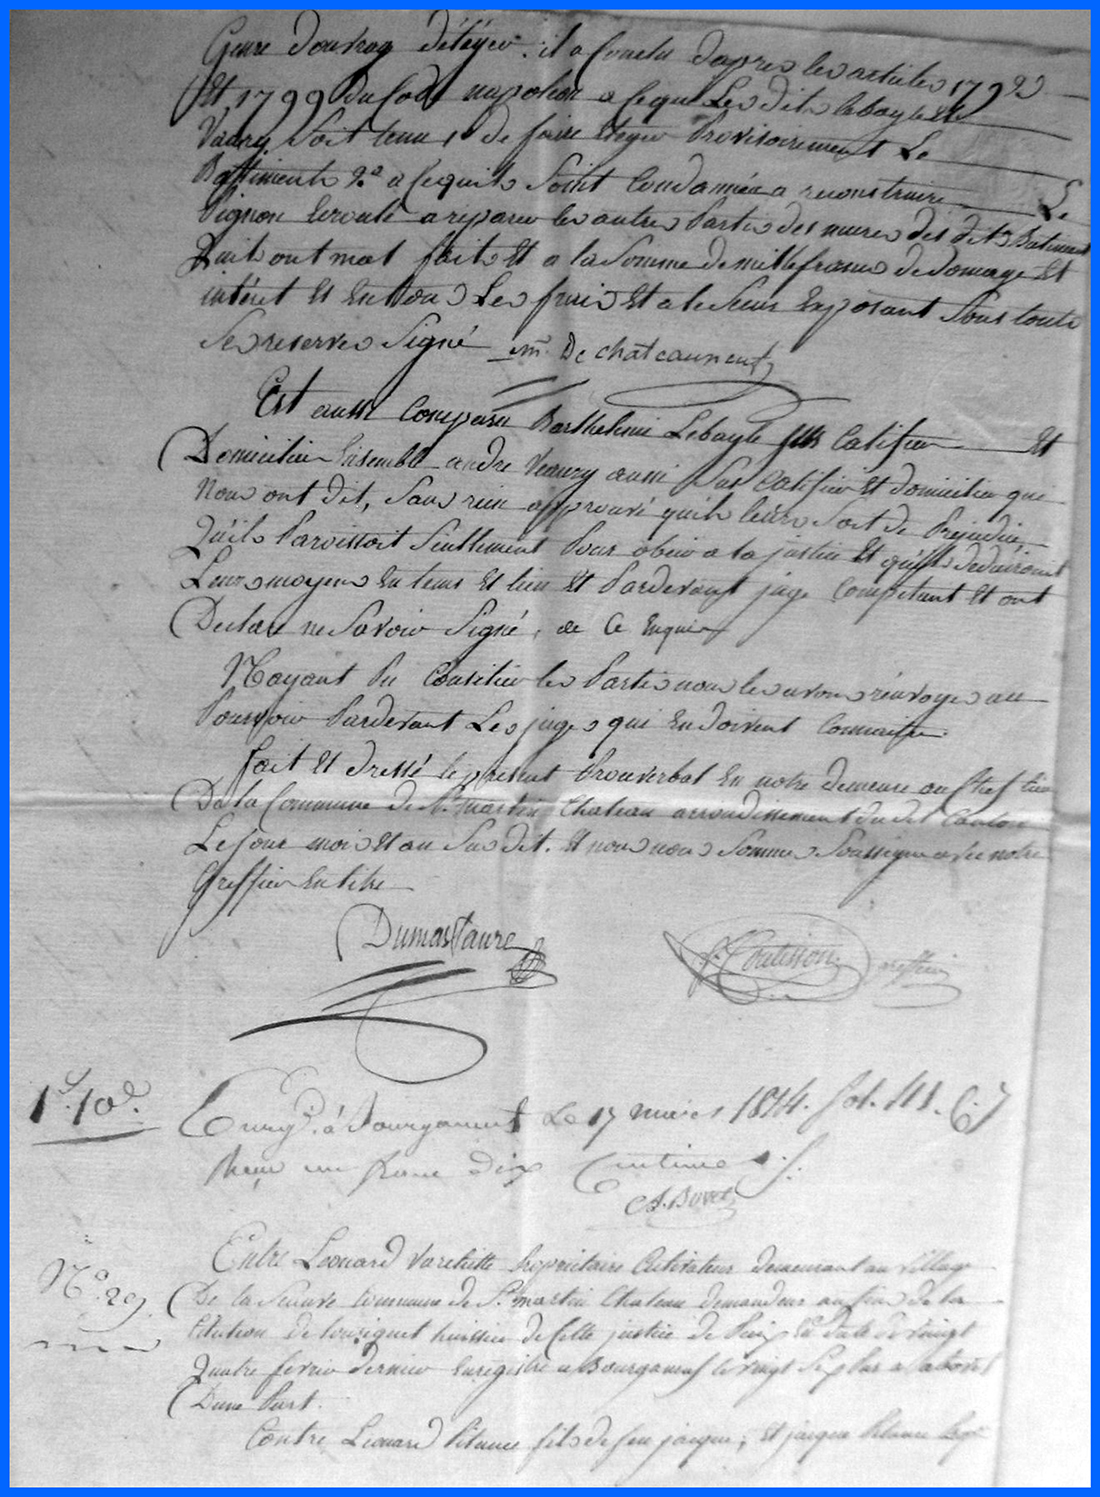 Genre douvrag il a Conclu dapres les articles 1792
Et 1799 du Code napoleon a ceque Les dits lebayle et
Vaury Soit tenu 1° de faire Provisoirement Le
Battiments 2° a cequils Soint Condamnée a reconstruire Le
Pignon Ecroulé a reparer les autres Partie des mures des dits Batiment
Quils ont mal fait Et a la Somme de mille francs de Domage Et
intéret Et En tous Les frais Et a le Sieur Exposant Sous toute
Ses reserves Signé Dechateauneuf
Est aussi Comparu Barthelemi Lebayle Et
Domicilier Ensemble andre Veaury aussi Et domicilier qui
Nous ont dit, Sans rien approuvé quih leurs Soit de Prejudice
Quils Paroissoit Seullement Pour obeir a la justice Et quils Deduiront
Leurs moyens En tems Et lieu Et Pardevant juge Compétant Et ont
Declare ne Savoir Signé, de Ce Enquis
Nayant Pu Concilier les Parties nous les avons renvoyé au
Pourvoir Pardevant Les juges qui En doivent Connaitre
fait Et Dressé le present Prouverbal En notre demeure au Chef lieu
De la Commune de St martin Chateau arrondissement du dit Canton
Le jour mois Et an Susdit. Et nous nous Sommes Soussigné avec notre
Greffier En titre
Dumas
Coutisson greffier
1f. 10c.
Enreg. à Bourganeuf Le 17 mars 1814. fol. 41. C. 7
Reçu un franc dix Centimes
Entre Leonard Varlhette Propriétaire Cultivateur demeurant au village
N° 29.
De la commune de St martin Chateau demandeur au fins de la
Citation de huissier de Cette justice de Paix En date du vingt
Quatre fevrier Dernier Enregistré a Bourganeuf le vingt Six Par
Dune Part.
Contre Leonard Pitance fils de feu jacque; Et jacque Pitance